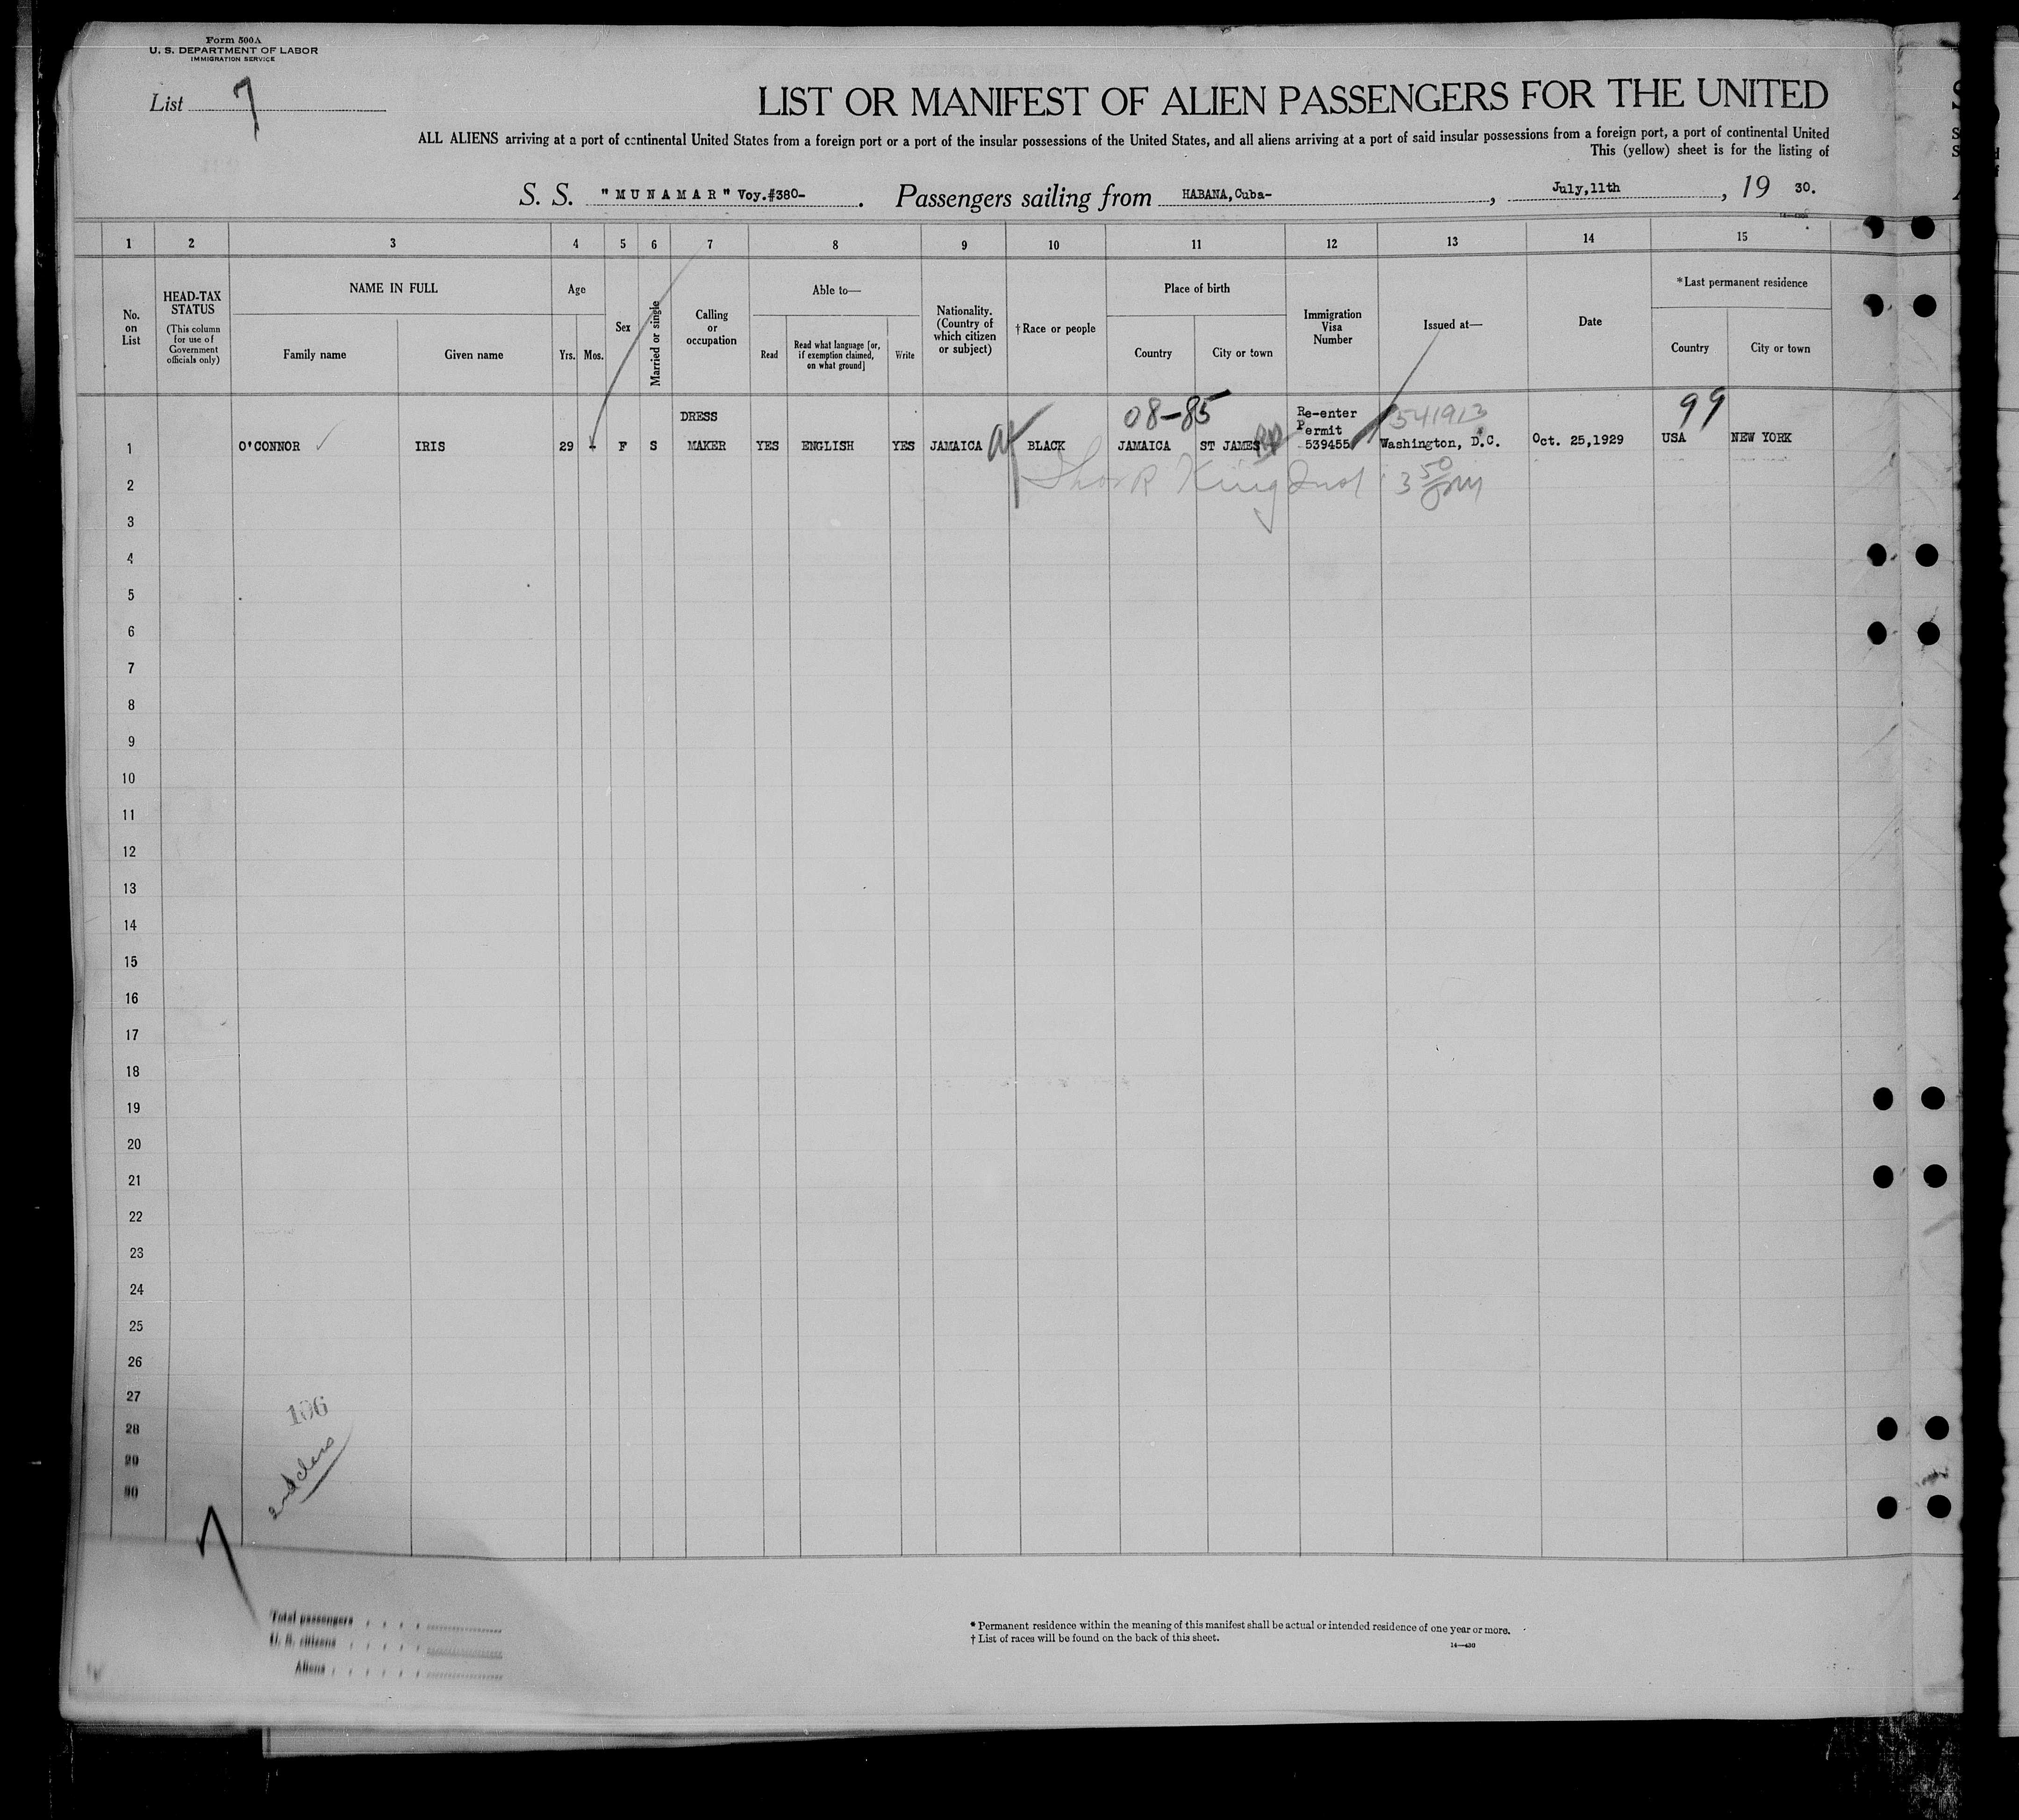 Form 500A
U. S. DEPARTMENT OF LABOR
IMMIGRATION SERVICE
List 7
LIST OR MANIFEST OF ALIEN PASSENGERS FOR THE UNITED
ALL ALIENS arriving at a port of continental United States from a foreign port or a port of the insular possessions of the United States, and all aliens arriving at a port of said insular possessions from a foreign port, a port of continental United
This (yellow) sheet is for the listing of
S. S. "MUNAMAR" Voy.#380- . Passengers sailing from HABANA,Cuba- , July,11th , 19 30.
1 2 3 4 5 6 7 8 9 10 11 12 13 14 15
No. on List
HEAD-TAX STATUS
(This column for use of Government officials only)
NAME IN FULL
Family name
Given name
Age
Yrs.
Mos.
Sex
Married or single
Calling or occupation
Able to—
Read
Read what language [or, if exemption claimed, on what ground]
Write
Nationality. (Country of which citizen or subject)
† Race or people
Place of birth
Country
City or town
Immigration Visa Number
Issued at—
Date
* Last permanent residence
Country
City or town
08-85
99
DRESS
Re-enter
Permit
541913
1 O'CONNOR IRIS 29 - F S MAKER YES ENGLISH YES JAMAICA BLACK JAMAICA ST JAMES 539455 Washington, D.C. Oct. 25,1929 USA NEW YORK
2
3
4
5
6
7
8
9
10
11
12
13
14
15
16
17
18
19
20
21
22
23
24
25
26
27
28
29
30
106
2nd class
7
Total passengers
U. S. citizens
Aliens
* Permanent residence within the meaning of this manifest shall be actual or intended residence of one year or more.
† List of races will be found on the back of this sheet.
14—430